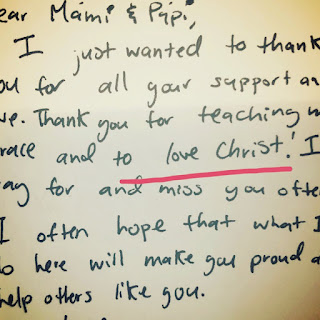 ear Mami & Papi,
I just wanted to thank
ou for all your support an
ve. Thank you for teaching m
race and to love Christ! I
ray for and miss you often
I often hope that what I
do here will make you proud a
help others like you.